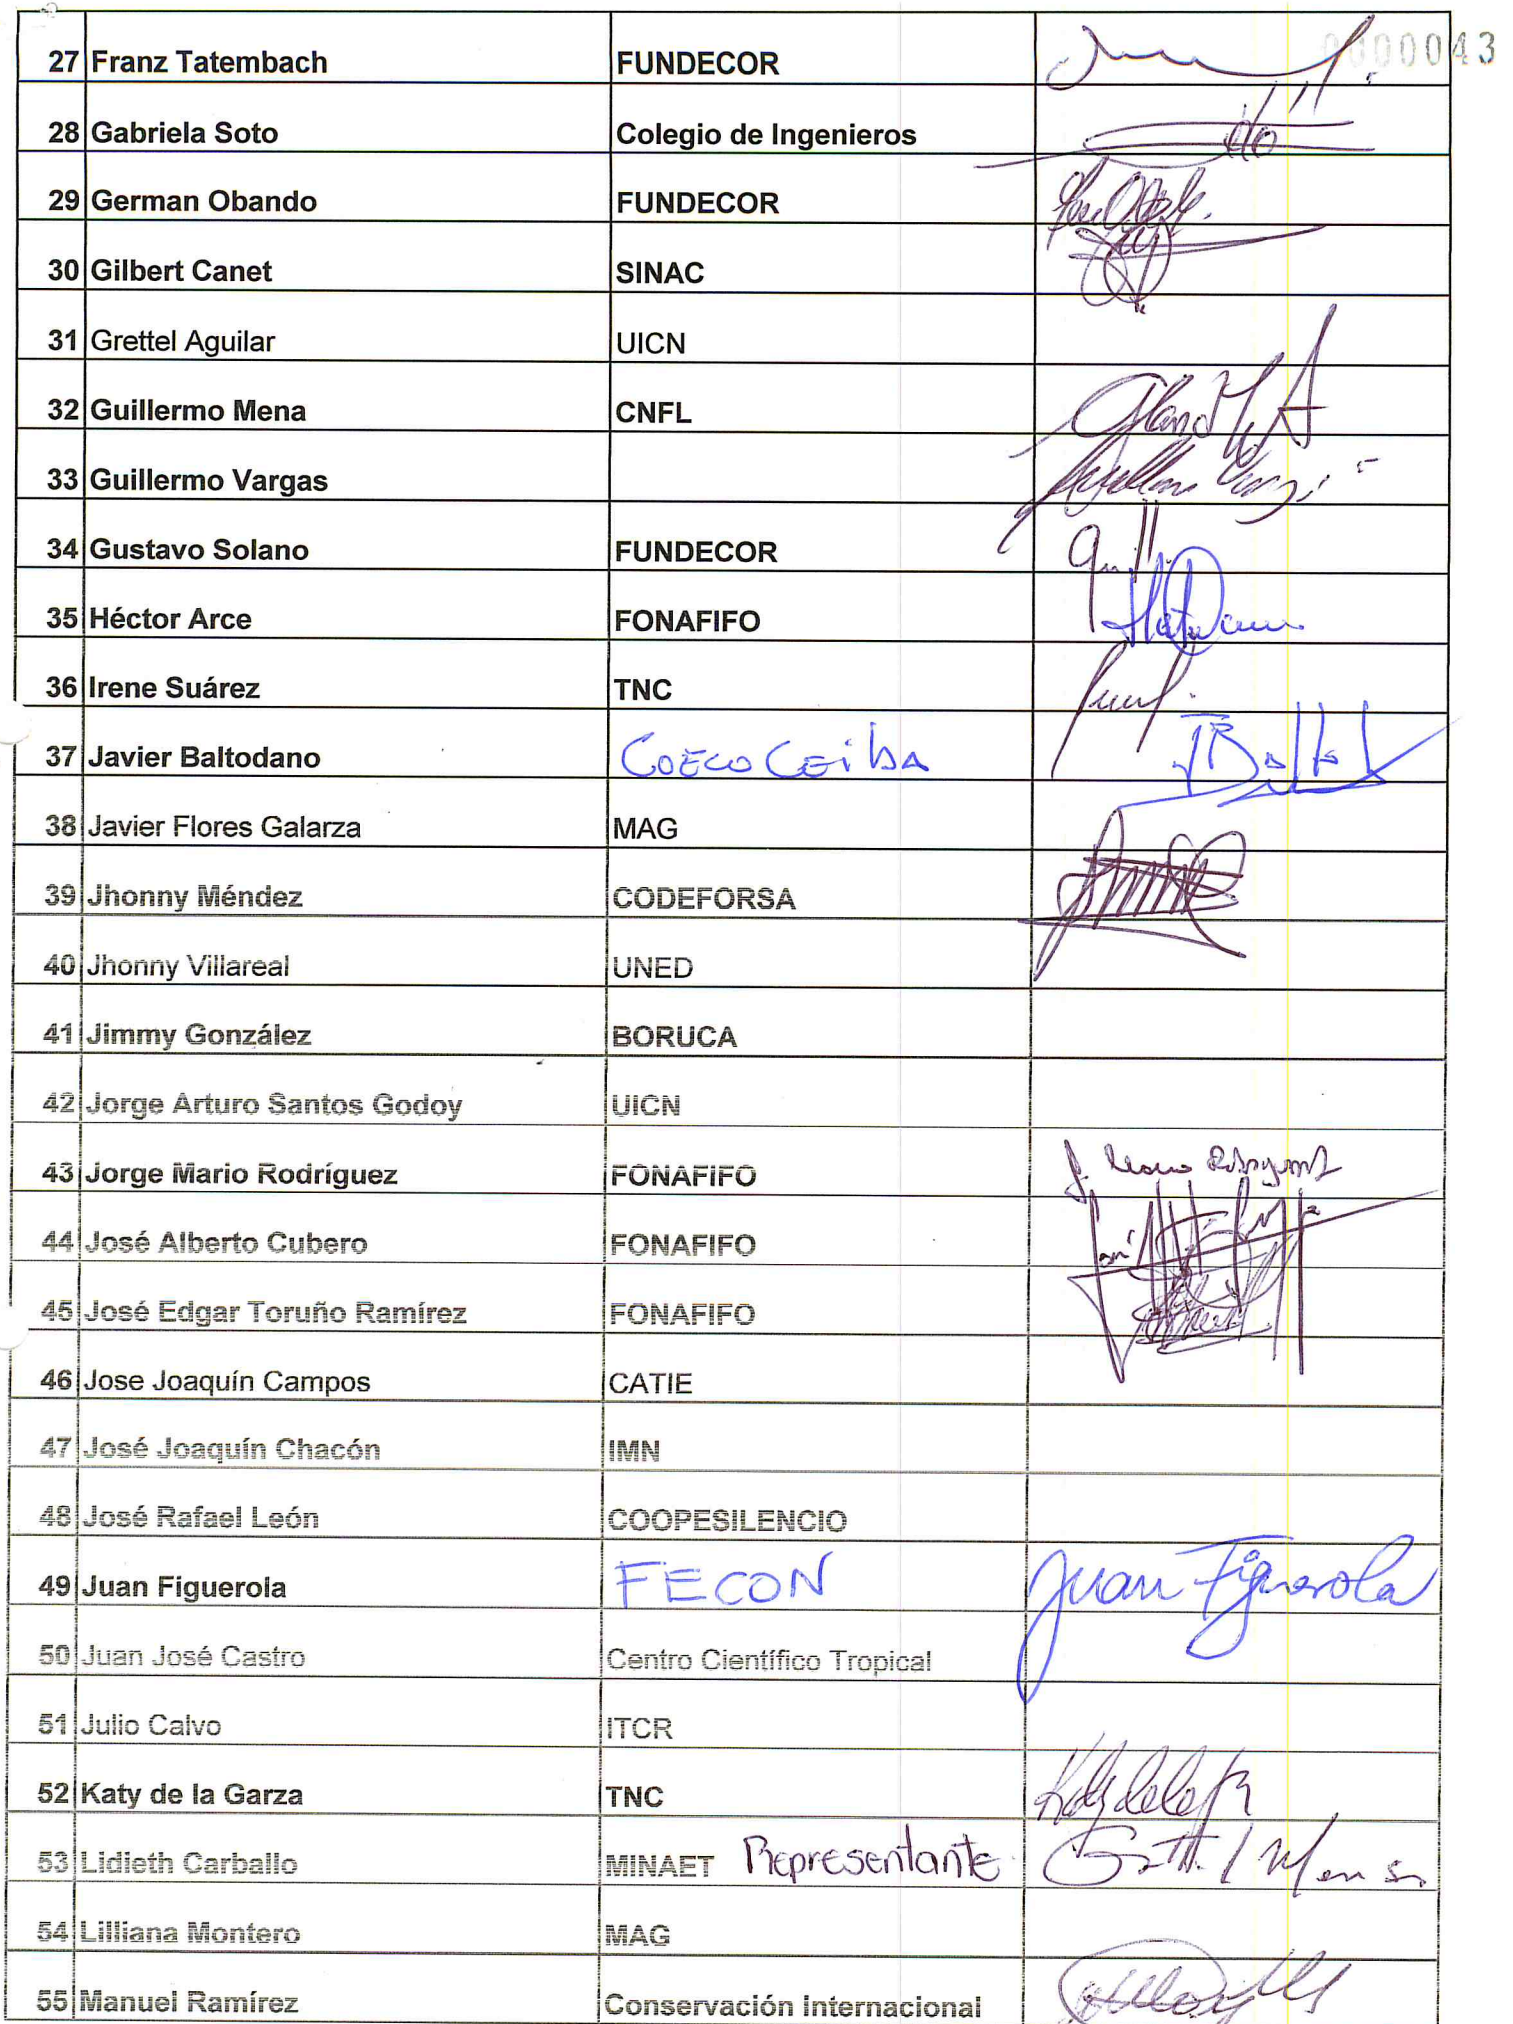 0000043
27 Franz Tatembach FUNDECOR
28 Gabriela Soto Colegio de Ingenieros
29 German Obando FUNDECOR
30 Gilbert Canet SINAC
31 Grettel Aguilar UICN
32 Guillermo Mena CNFL
33 Guillermo Vargas
34 Gustavo Solano FUNDECOR
35 Héctor Arce FONAFIFO
36 Irene Suárez TNC
37 Javier Baltodano COECO CEiba
38 Javier Flores Galarza MAG
39 Jhonny Méndez CODEFORSA
40 Jhonny Villareal UNED
41 Jimmy González BORUCA
42 Jorge Arturo Santos Godoy UICN
43 Jorge Mario Rodríguez FONAFIFO
44 José Alberto Cubero FONAFIFO
45 José Edgar Toruño Ramírez FONAFIFO
46 Jose Joaquín Campos CATIE
47 José Joaquín Chacón IMN
48 José Rafael León COOPESILENCIO
49 Juan Figuerola FECON Juan Figuerola
50 Juan José Castro Centro Científico Tropical
51 Julio Calvo ITCR
52 Katy de la Garza TNC
53 Lidieth Carballo MINAET Representante
54 Lilliana Montero MAG
55 Manuel Ramírez Conservación Internacional